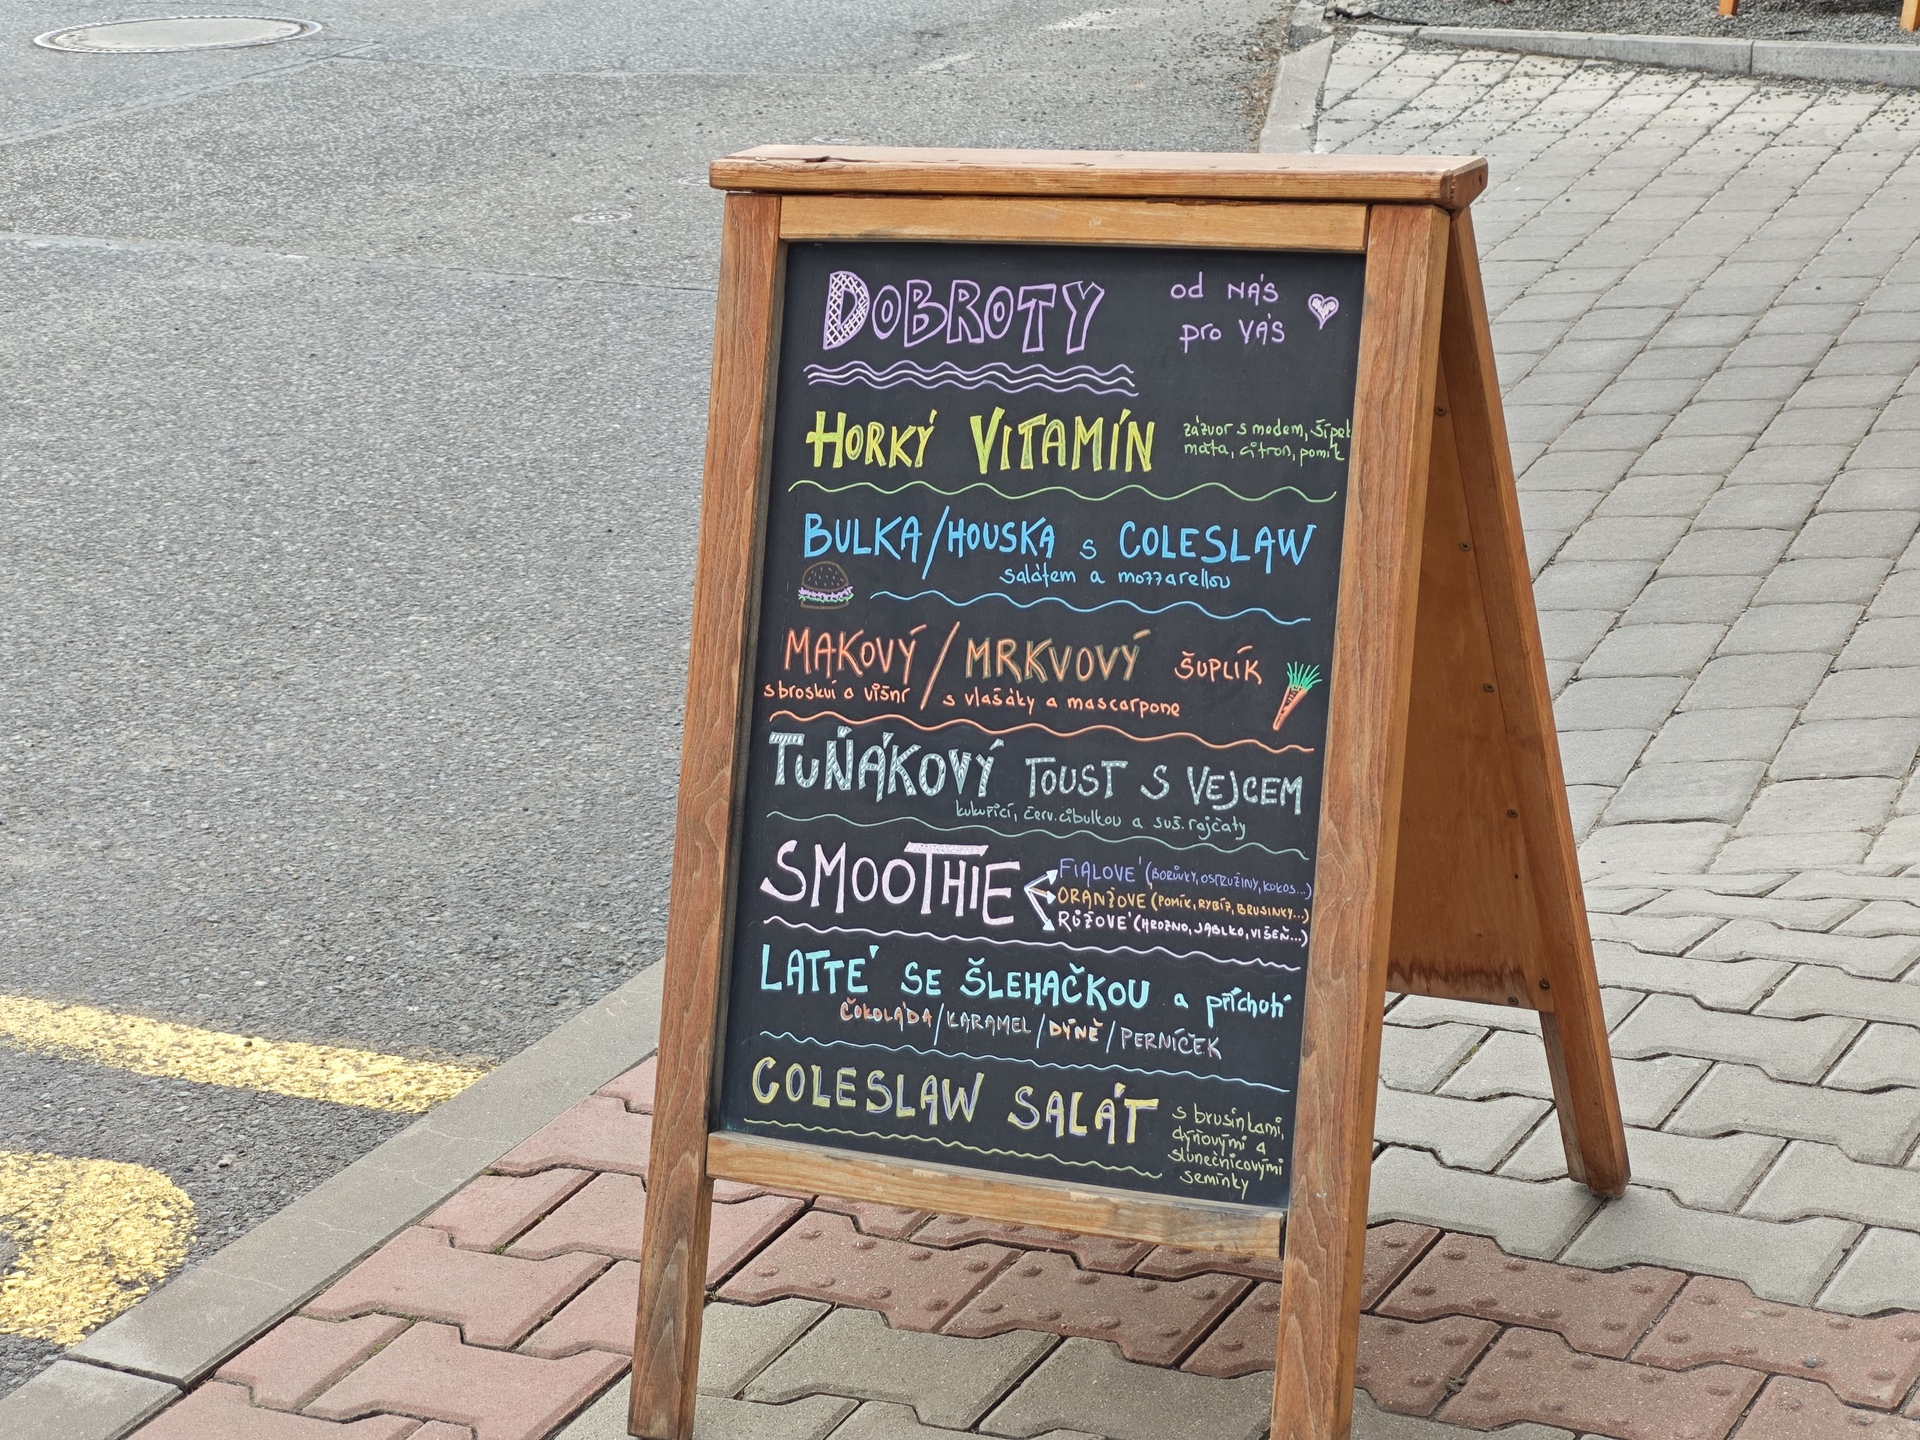 DOBROTY od NÁS
pro VÁS
HORKÝ VITAMÍN zázvor s medem, šípek
máta, citron, pomík
BULKA/HOUSKA s COLESLAW
salátem a mozzarellou
MAKOVÝ / MRKVOVÝ ŠUPLÍK
s broskví a višní / s vlašáky a mascarpone
TUŇÁKOVÝ TOUST S VEJCEM
kukuřicí, červ. cibulkou a suš. rajčaty
SMOOTHIE
FIALOVÉ (BORŮVKY, OSTRUŽINY, KOKOS...)
ORANŽOVÉ (POMÍK, RYBÍZ, BRUSINKY...)
RŮŽOVÉ (HROZNO, JABLKO, VIŠEŇ...)
LATTÉ SE ŠLEHAČKOU a příchutí
ČOKOLÁDA/KARAMEL/DÝNĚ/PERNÍČEK
COLESLAW SALÁT
s brusinkami,
dýňovými a
slunečnicovými
semínky